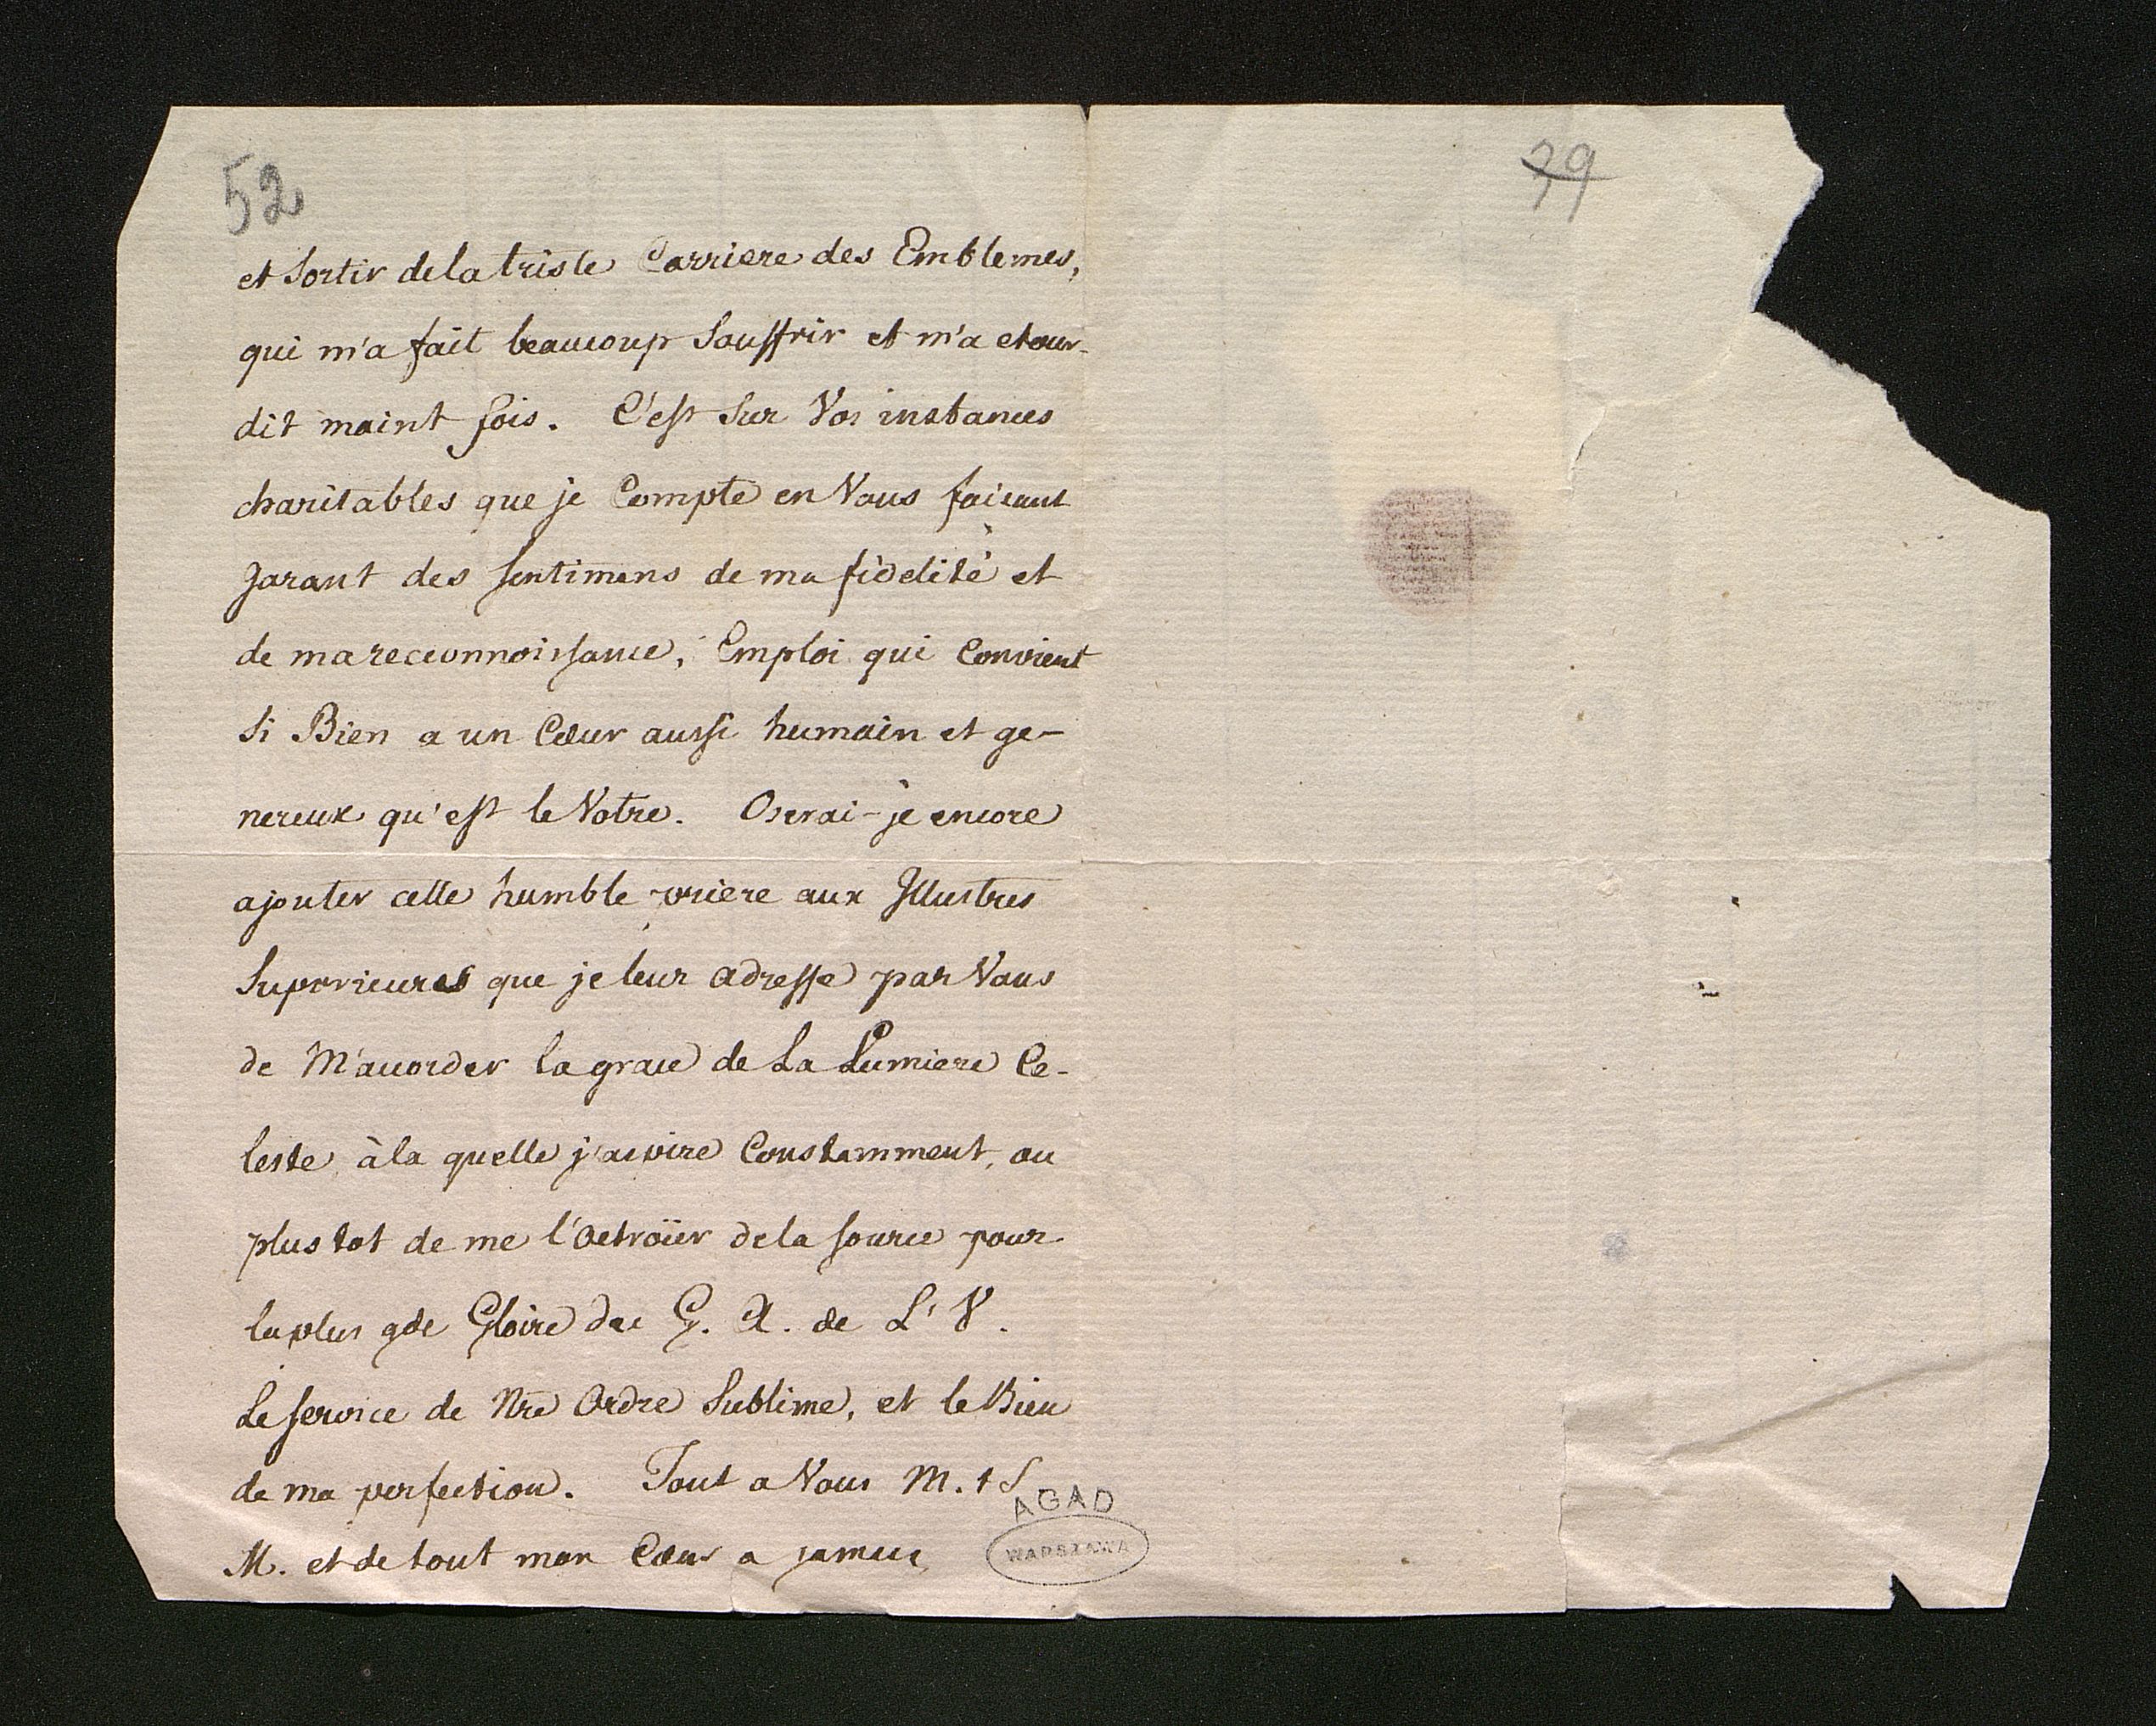 52
39
et Sortir de la triste Carriere des Emblemes,
qui m'a fait beaucoup Souffrir et m'a etour-
dit maint fois. C'est Sur Vos instances
charitables que je Compte en Vous faisant
garant des sentimens de ma fidelité et
de ma recconnoissance, Emploi qui Convient
Si Bien a un Cœur aussi humain et ge-
nereux qu'est le Votre. Oserai-je encore
ajouter cette humble priere aux Illustres
Superieures que je leur adresse par Vous
de M'accorder la grace de La Lumiere Ce-
leste à la quelle j'aspire Constamment, ou
plus tot de me l'Octroïer de la source pour
la plus gde Gloire du G. A. de L'V.
Le service de Nre Ordre Sublime, et le Bien
de ma perfection. Tout a Vous M. t S
M. et de tout mon Cœur a jamais
AGAD
WARSZAWA